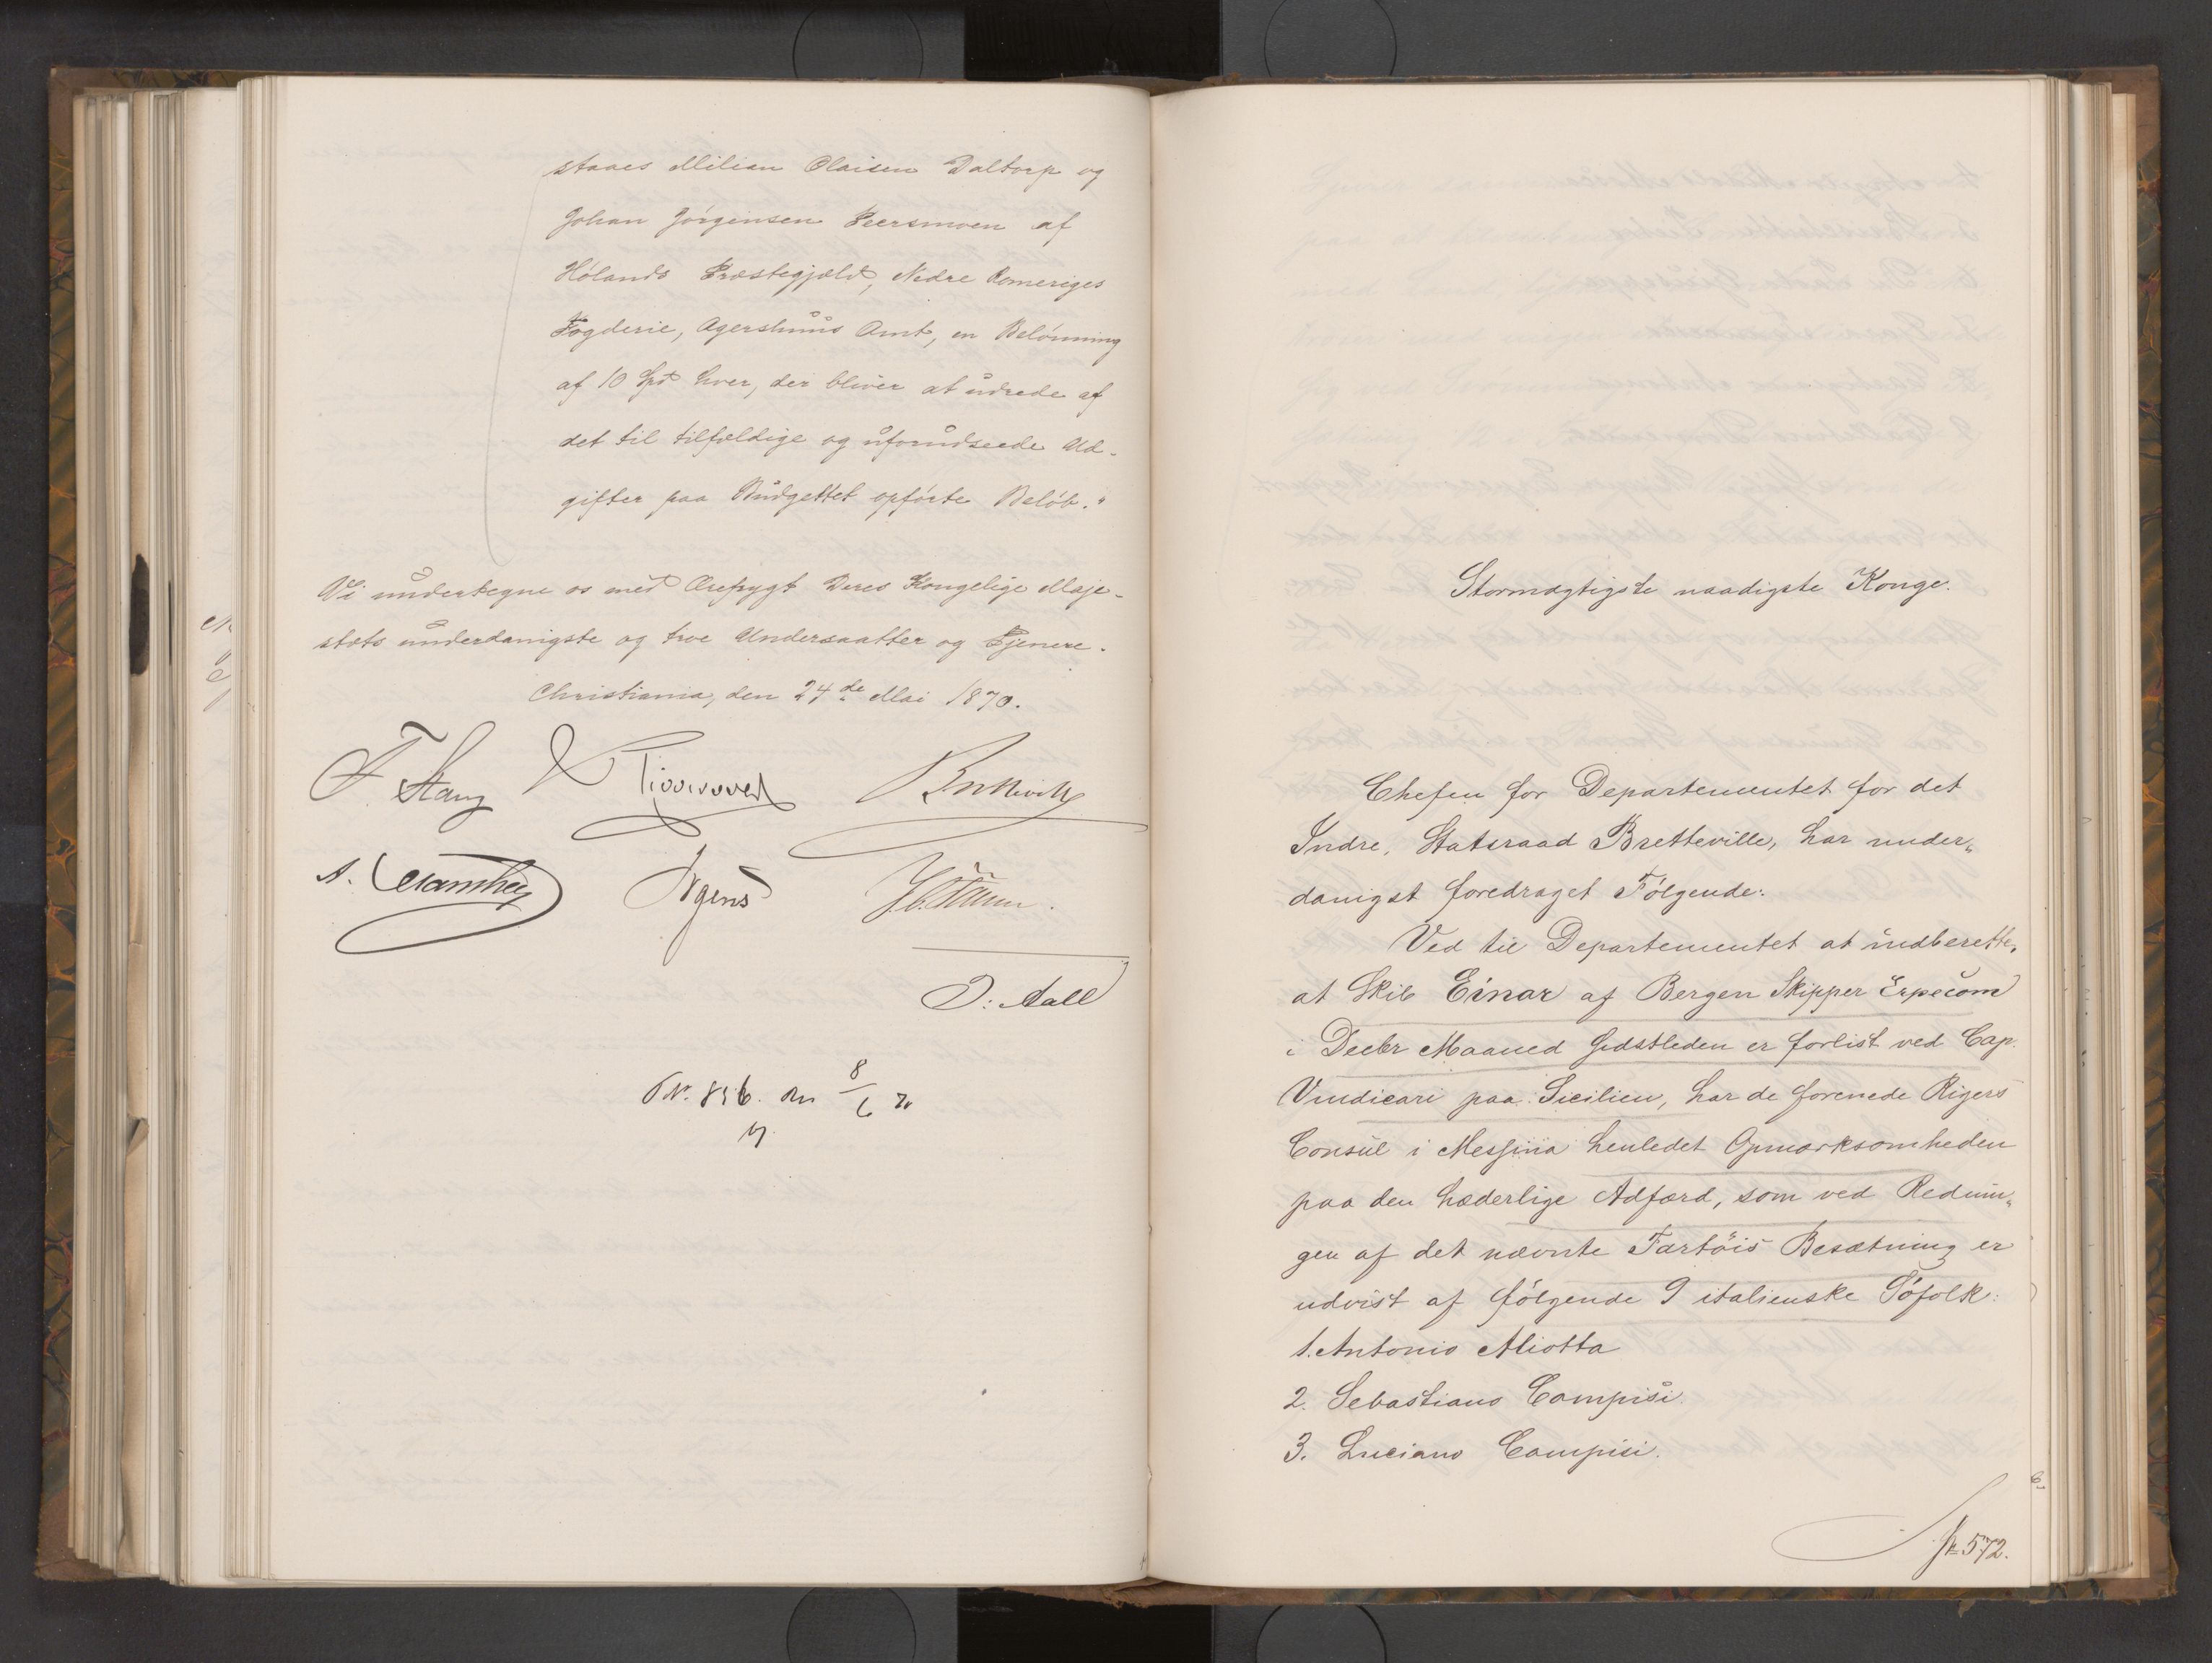 staaes Milian Olaisen Daltorp og
Johan Jörgensen Peersmoen af
Hölands Præstegjæld, Nedre Romeriges
Fogderie, Agershuus Amt, en Belönning
af 10 Spd hver, der bliver at udrede af
det til tilfældige og uforudseede Ud-
gifter paa Budgettet opförte Belöb."
Vi undertegne os med Ærefrygt Deres Kongelige Maje-
stæts underdanigste og troe Undersaatter og Tjenere.
Christiania, den 24de Mai 1870.
F. Stang Bretteville
Irgens
J: Aall
No. 856. 8/6 70
Stormægtigste naadigste Konge.
Chefen for Departementet for det
Indre, Statsraad Bretteville, har under„
danigst foredraget Fölgende:
Ved til Departementet at indberette,
at Skib Einar af Bergen Skipper Erpecom
i Decbr Maaned sidstleden er forlist ved Cap.
Vindicari paa Sicilien, har de forenede Rigers
Consul i Messina henledet Opmærksomheden
paa den hæderlige Adfærd, som ved Rednin„
gen af det nævnte Fartöis Besætning er
udvist af fölgende 9 italienske Söfolk:
1. Antonio Aliotta
2. Sebastiano Campisi.
3. Luciano Campisi.
572.